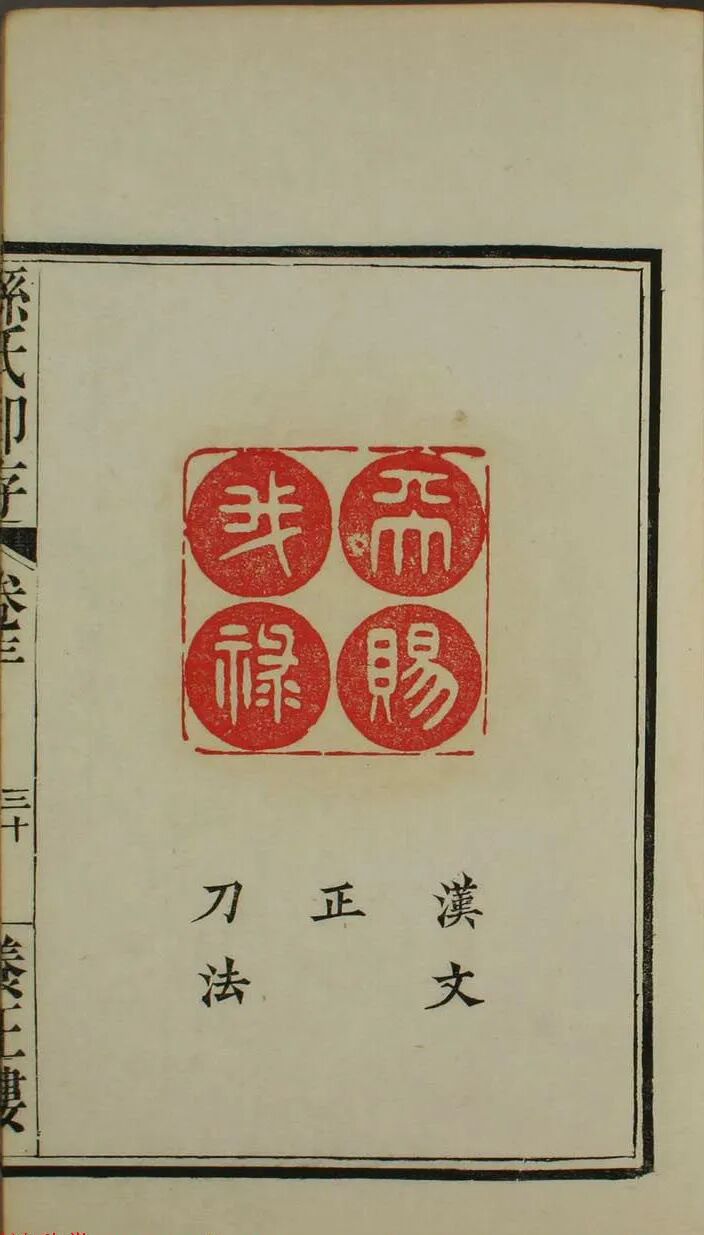 天賜
我祿
漢文
正
刀法
孫氏印存
卷三
三十
養正樓